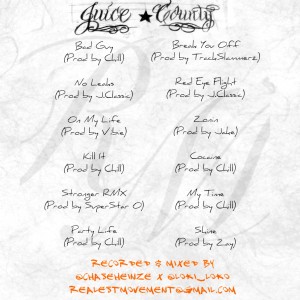 Juice ★ County
Bad Guy
(Prod by Chill)
No Leaks
(Prod by J.Classic)
On My Life
(Prod by V.bie)
Kill It
(Prod by Chill)
Stronger RMX
(Prod by SuperStar O)
Party Life
(Prod by Chill)
Break You Off
(Prod by TrackSlammerz)
Red Eye Flight
(Prod by J.Classic)
Zonin
(Prod by Jake)
Cocaine
(Prod by Chill)
My Time
(Prod by Chill)
Shine
(Prod by Zoy)
RECORDED & MIXED BY
@CHASEHEINZE X @LOKI_LOKO
REALESTMOVEMENT@GMAIL.COM